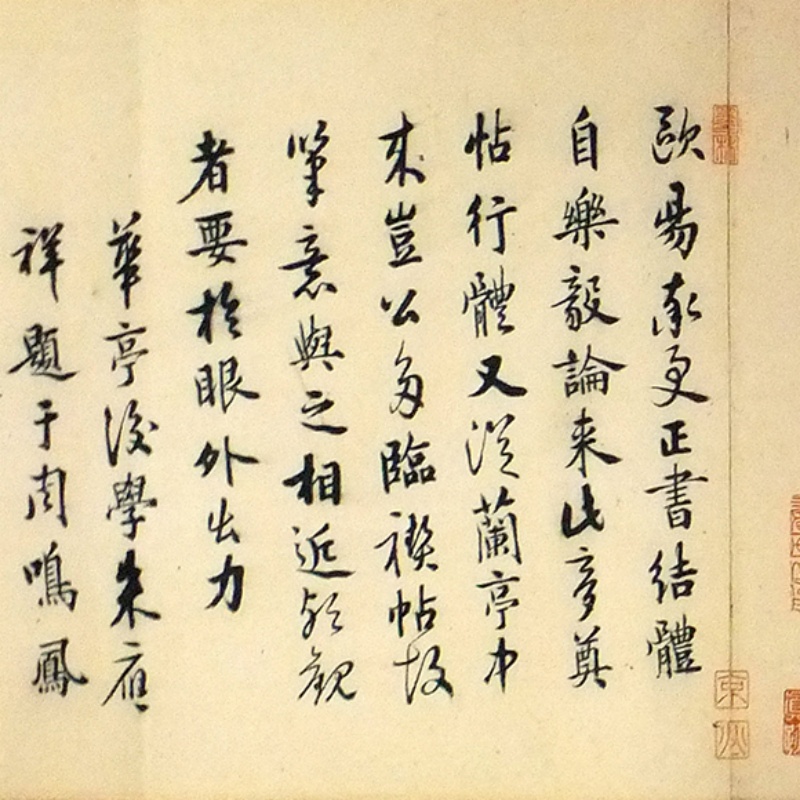 歐陽率更正書結體
自樂毅論来此夢奠
帖行體又從蘭亭中
来豈公多臨禊帖故
筆意與之相近歟觀
者要於眼外出力
華亭後學朱應
祥題于周鳴鳳